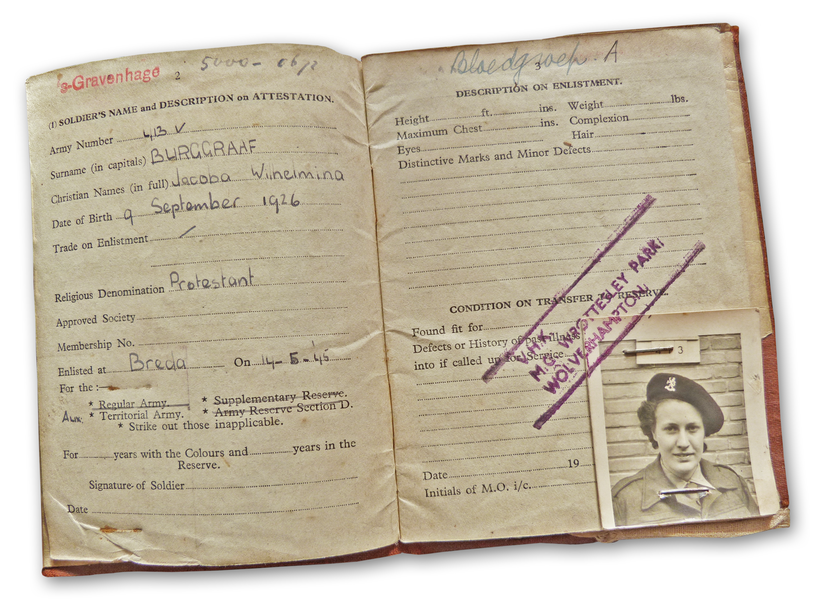 's-Gravenhage
2
5000-
(1) SOLDIER'S NAME and DESCRIPTION on ATTESTATION.
Army Number
Surname (in capitals) BURGGRAAF
Christian Names (in full) Jacoba Wilhelmina
Date of Birth 9 September 1926
Trade on Enlistment
Religious Denomination Protestant
Approved Society
Membership No.
Enlisted at Breda On 14-5-45
For the :—
* Regular Army. * Supplementary Reserve.
Aux. * Territorial Army. * Army Reserve Section D.
* Strike out those inapplicable.
For years with the Colours and years in the
Reserve.
Signature of Soldier
Date
Bloedgroep. A
3
DESCRIPTION ON ENLISTMENT.
Height ft. ins. Weight lbs.
Maximum Chest ins. Complexion
Eyes Hair
Distinctive Marks and Minor Defects
CONDITION ON TRANSFER TO RESERVE.
Found fit for
Defects or History of past illness
into if called up for Service
Date 19
Initials of M.O. i/c.
V.H.K.
WROTTESLEY PARK
WOLVERHAMPTON
3